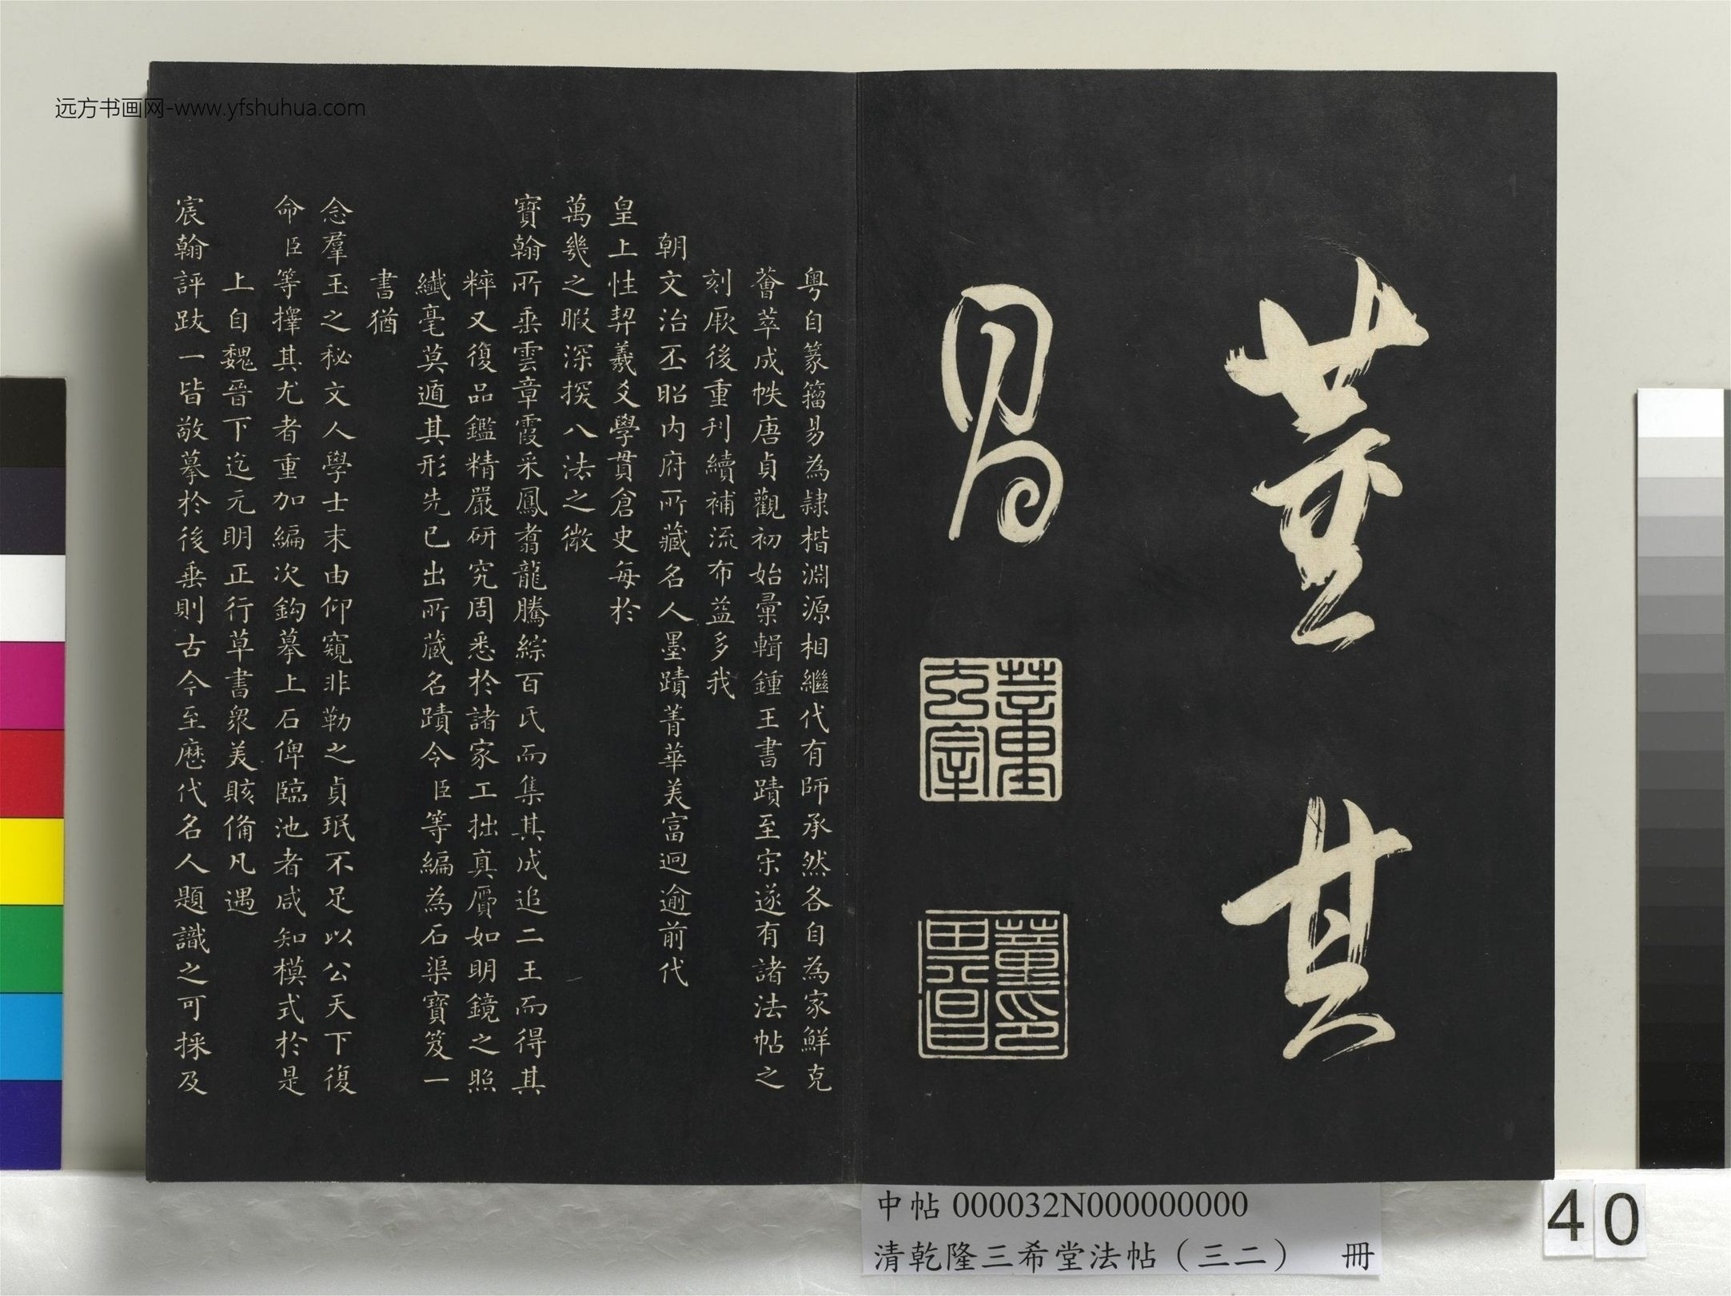 远方书画网-www.yfshuhua.com
董其
昌
董其昌印
粤自篆籀易為隷楷淵源相繼代有師承然各自為家鮮克
薈萃成帙唐貞觀初始彙輯鍾王書蹟至宋遂有諸法帖之
刻厥後重刊續補流布益多我
朝文治丕昭内府所藏名人墨蹟菁華美富迥逾前代
皇上性契羲爻學貫倉史每於
萬幾之暇深探八法之微
寶翰所垂雲章霞采鳳翥龍騰綜百氏而集其成追二王而得其
粹又復品鑑精嚴研究周悉於諸家工拙真贋如明鏡之照
纖毫莫遁其形先已出所藏名蹟令臣等編為石渠寶笈一
書猶
念羣玉之秘文人學士末由仰窺非勒之貞珉不足以公天下復
命臣等擇其尤者重加編次鈎摹上石俾臨池者咸知模式於是
上自魏晉下迄元明正行草書衆美賅備凡遇
宸翰評跋一皆敬摹於後垂則古今至歷代名人題識之可採及
中帖 000032N000000000
清乾隆三希堂法帖（三二） 冊
40